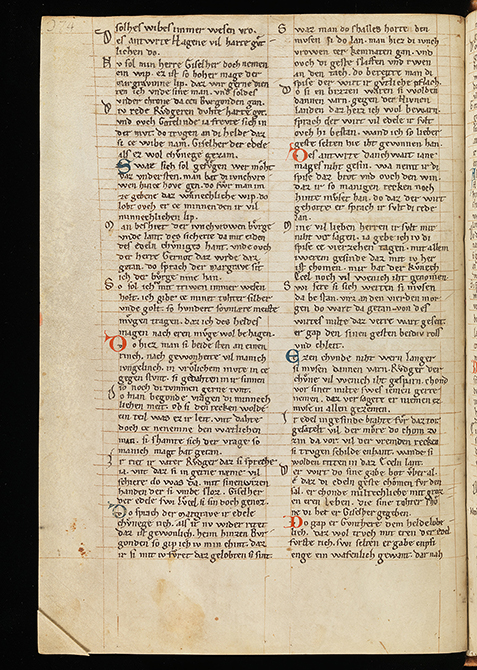 solhes wibes immer wesen vro.
des antwrte Hagene vil harte gut
lichen do.
Nv sol min herre Giselher doch nemen
ein wip. ez ist so hoher mage der
margravinne lip. daz wir gerne dien
ten ich vnde sine man. vnd soldes
vnder chrone da cen Burgonden gan.
Div rede Rvdgeren dvhte harte gut.
vnd ovch Gotelinde ia frevte sich ir
der mvt. do trvgen an di helde daz
si ce wibe nam. Giselher der edele
als ez wol chvnege gezam.
Swaz sich sol gefvgen wer moht
daz vnderstem. man bat di ivnchvro
wen hince hove gen. do swr man im
ze gebene daz wnnechliche wip. do
lobt ovch er ce minnen den ir vil
minnechlichen lip.
Man beschiet der ivnchvrowen burge
vnde lant. des sicherte da mit eiden
des edeln chvniges hant. vnde ovch
der herre Gernot daz wrde daz
getan. do sprach der margrave sit
ich der bvrge nine han.
So sol ich mit triwen immer wesen
holt. ich gibe ce miner tohter silber
vnde golt. so hundert sovmære meiste
mvgen tragen. daz ich des heldes
magen nach eren mvge wol be hagen.
Do hiez man si beide sten an einen
rinch. nach gewonheite vil manich
ivngelinch. in vrolichem mvte in ce
gegen stvnt. si gedahten in ir sinnen
so noch di tvmmen gerne tvnt.
Do man begunde vragen di minnech
lichen meit. ob si den recken wolde
ein teil was ez ir leit. vnt dahte
doch ce nemenne den watlichen
man. si shamte sich der vrage so
manich magt hat getan.
Ir riet ir vater Rvdger daz si spreche
ia. vnt daz si in gerne næme vil
schiere do was da. mit sinen wizen
handen der si vmbe sloz. Giselher
der edele swi lvcel si sin doch genoz.
Do sprach der margrave ir edele
chvnege rich. als ir nv wider ritet
daz ist gewonlich. heim hincen Bvr
gonden so gip ich iv min chint. daz
ir si mit iv fvret daz gelobten si sint.
Swaz man do shalles horte den
mvsen si do lan. man hiez di ivnch
vrowen cer kemnaten gan. vnd
ovch di geste slaffen vnd rvwen
an den tach. do bereite man di
spise der wirt ir gvtliche pflach.
Do si en bizzen waren si wolden
dannen varn. gegen der Hivnen
landen daz heiz ich wol bewarn.
sprach der wirt vil edele ir svlt
ovch hi bestan. wand ich so lieber
geste selten hie iht gewunnen han.
Des antwrte Danchwart iane
mages niht gesin. wa nemt ir di
spise daz brot vnd ovch den win.
daz ir so manigen recken noch
hinte mvset han. do daz der wirt
gehorte er sprach ir svlt di rede
lan.
Mine vil lieben herren ir svlt mir
niht ver sagen. ia gebe ich iv di
spise ce vierzehen tagen. mit allem
iweren gesinde daz mit iv her
ist chomen. mir hat der kvnech
Ecel noch vil wenich iht genomen.
Swi sere si sich werten si mvsen
da be stan. vnz an den vierden mor
gen do wart da getan. von des
wirtes milte daz verre wart geseit.
er gap den sinen gesten beidiv ros
vnd chleit.
Ezen chvnde niht wern langer
si mvsen dannen varn. Rvdger der
chvne vil wenich iht gesparn. chond
vor siner milte swes iemen gerte
nemen. daz ver sagete er niemen ez
mvse in allen gezemen.
Ir edel ingesinde brahte fvr daz tor
gesatelt vil der more do chom zv
zin da vor vil der vremden recken
si trvgen schilde enhant. wande si
wolden riten in daz Eceln lant.
Der wirt do sine gabe bot vber al.
e daz di edeln geste chomen fvr den
sal. er chonde miltechliche mit groz
en eren leben. die sine tohter scho
ne di het er Giselher gegeben.
Do gap er Gvnthere dem helede lobe
lich. daz wol trvch mit eren der edel
fvrste rich. swi selten er gabe enpfi
enge ein wafenlich gewant. dar nah